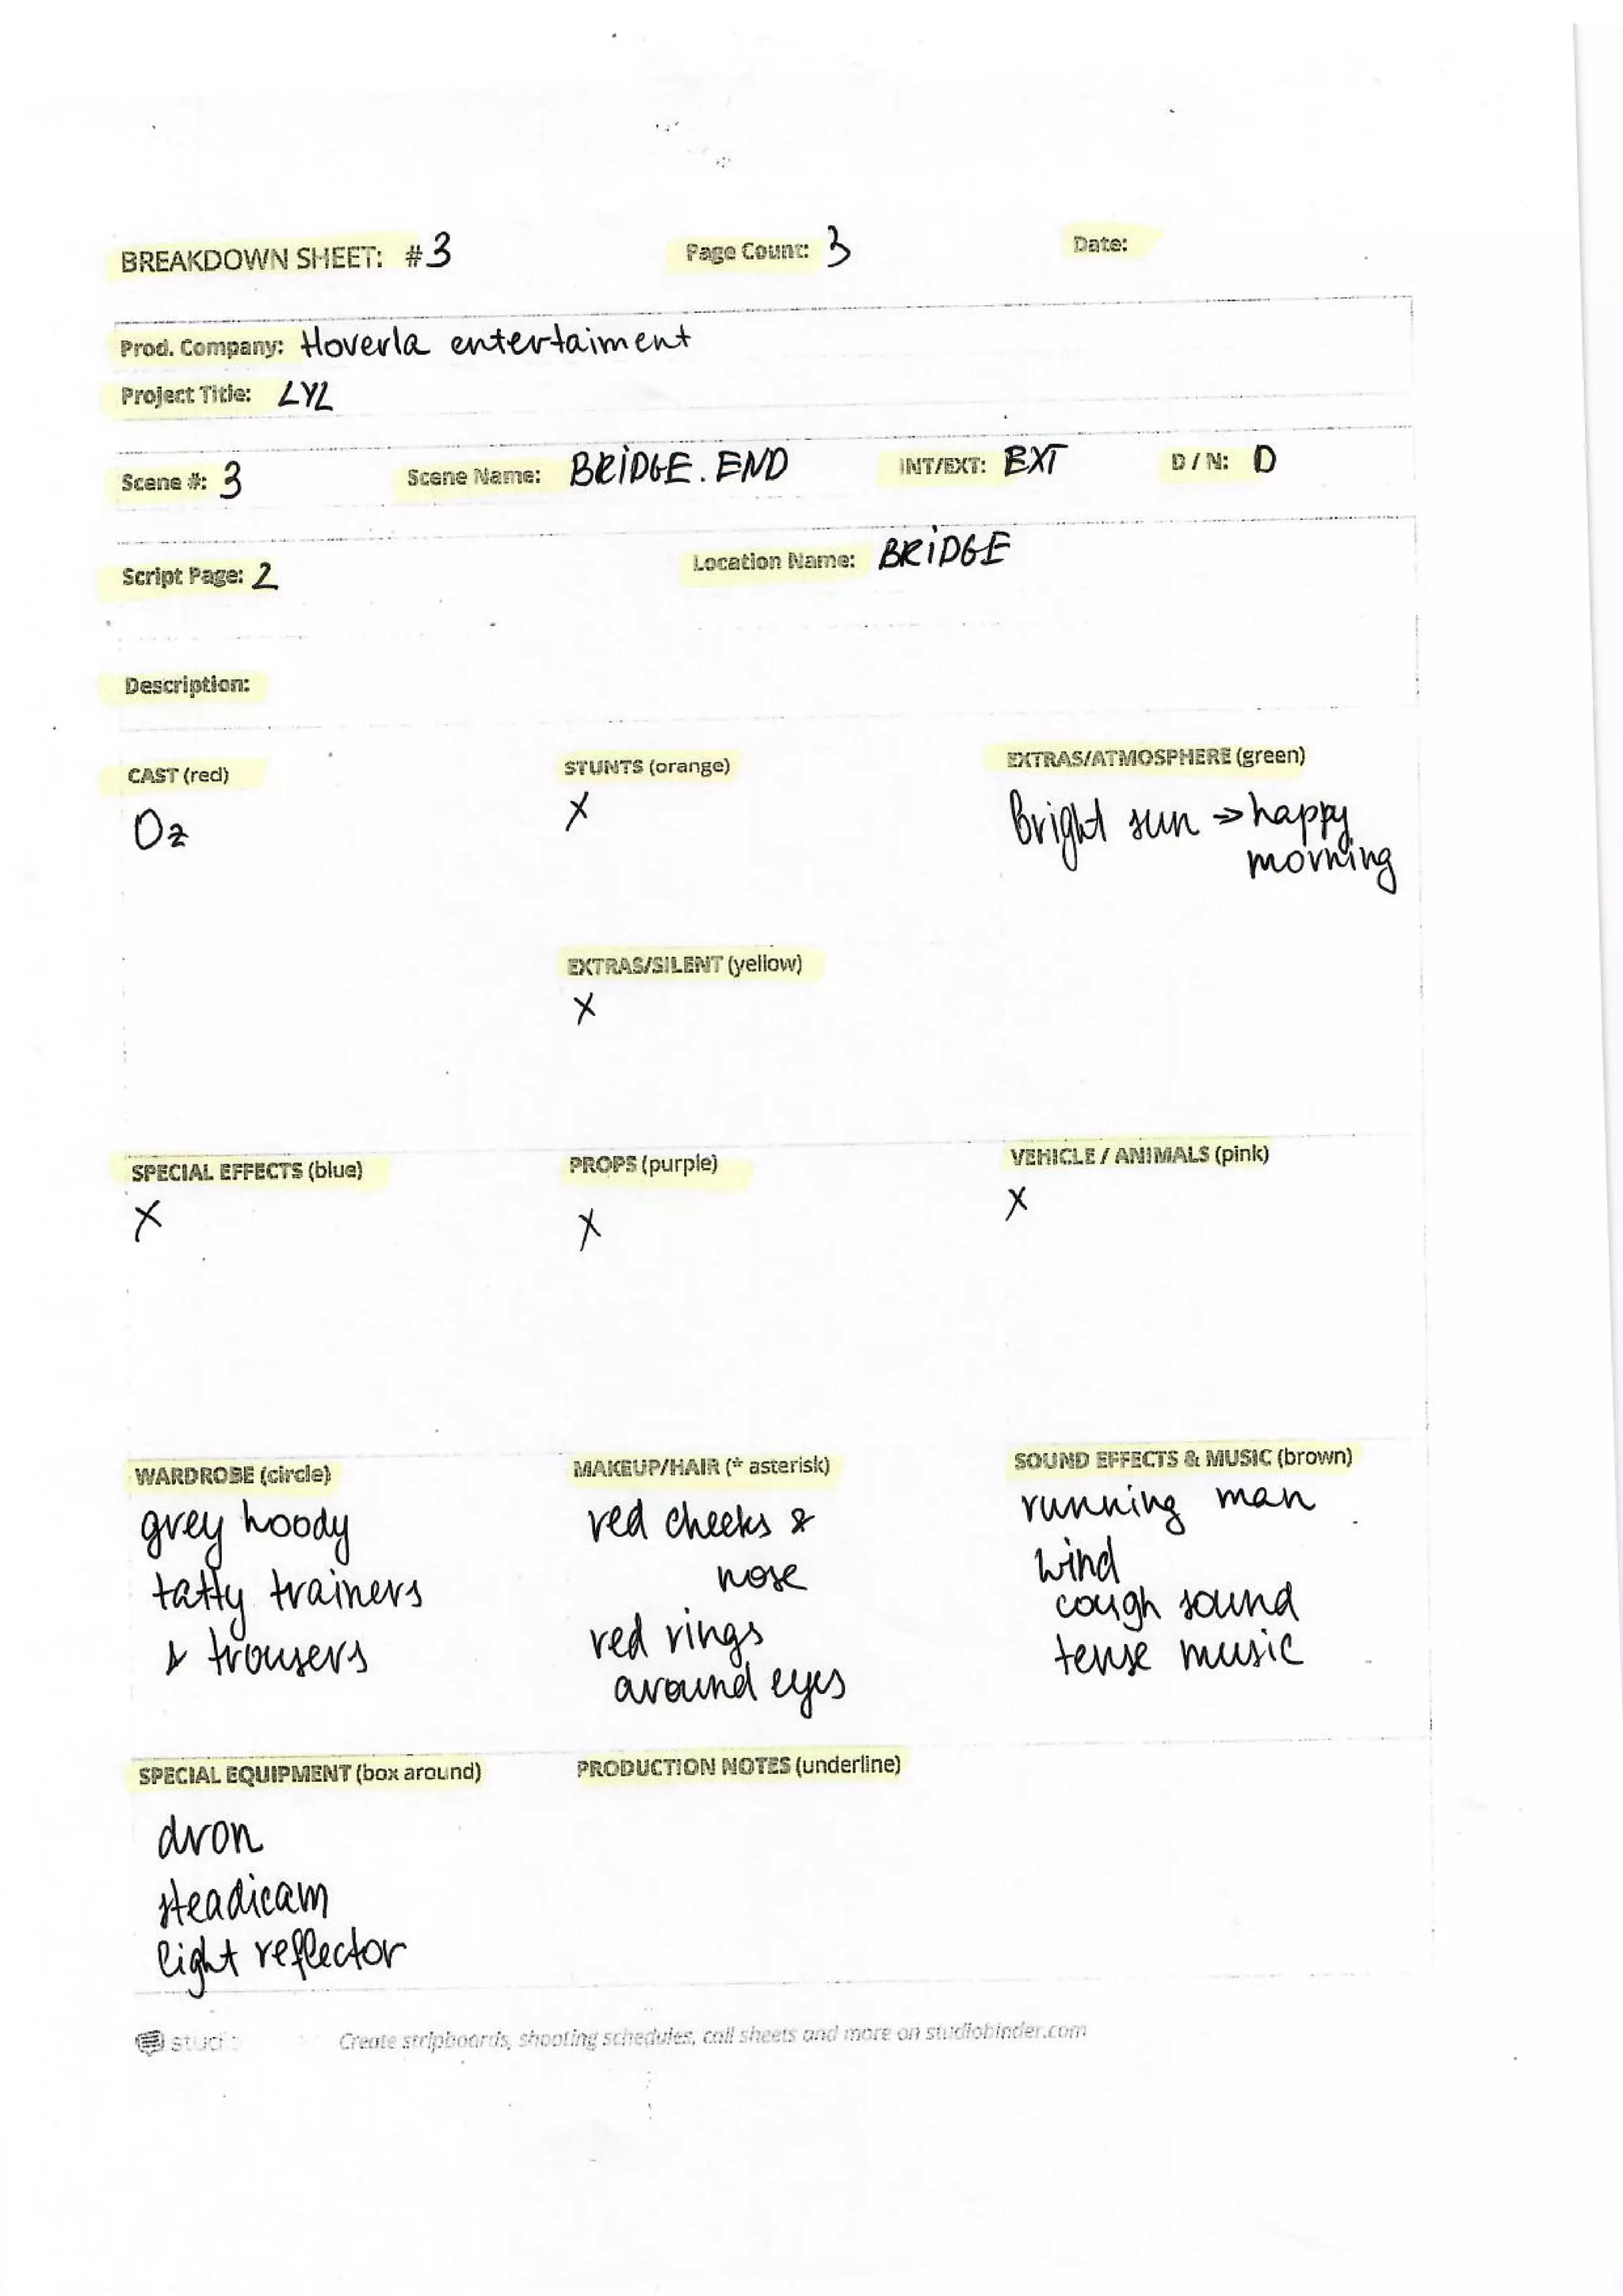 BREAKDOWN SHEET: #3 Page Count: 3 Date:
Prod. Company: Hoverla entertaiment
Project Title: LYL
Scene #: 3 Scene Name: BRIDGE. END INT/EXT: EXT D / N: D
Script Page: 2 Location Name: BRIDGE
Description:
CAST (red) STUNTS (orange) EXTRAS/ATMOSPHERE (green)
Oz X Bright sun => happy
morning
EXTRAS/SILENT (yellow)
X
SPECIAL EFFECTS (blue) PROPS (purple) VEHICLE / ANIMALS (pink)
X X X
WARDROBE (circle) MAKEUP/HAIR (* asterisk) SOUND EFFECTS & MUSIC (brown)
grey hoody red cheeks & running man
tatty trainers nose wind
& trousers red rings cough sound
around eyes tense music
SPECIAL EQUIPMENT (box around) PRODUCTION NOTES (underline)
dron
steadicam
light reflector
Create stripboards, shooting schedules, call sheets and more on studiobinder.com